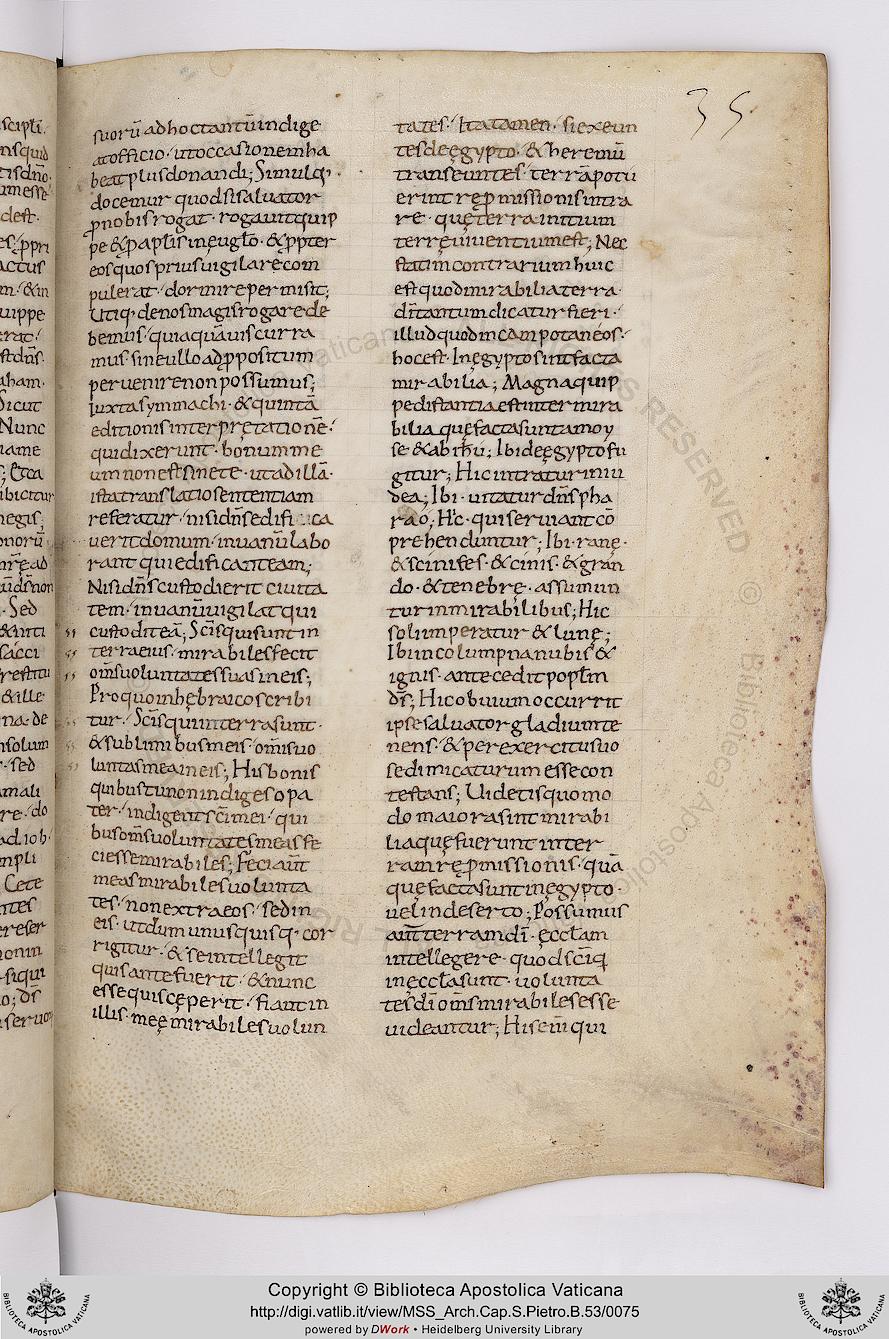 35
suorū adhoctantūindige
atofficio· utoccasionemha
beat plusdonandi; Simulq·
docemur quodsisaluator
ꝓnobisrogat· rogauitquip
pe &ꝓaplis ineuglo· &ꝓpter
eosquospriusuigilarecom
pulerat· dormirepermisit;
Utiq· denosmagisrogarede
bemus· quiaquāuiscurra
mus· sineulloadꝓpositum
peruenirenonpossumus;
Iuxtasymmachi· &quintā
editionisinterpretationē·
quidixerunt· bonumme
umnonestsinete· utadillā·
istatranslatiosententiam
referatur· nisidn̄sedifi ca
ueritdomum· inuanūlabo
rant quiedificanteam;
Nisidn̄scustodierit ciuita
tem· inuanūuigilatqui
custoditeā; Sc̄isquisuntin
terraeius· mirabilesfecit
om̄suoluntatessuasineis;
Proquoinhębraicoscribi
tur· Sc̄isquiinterrasunt·
&sublimibusmeis· om̄isuo
luntasmeaineis; Hisbonis
quibustunonindigesopa
ter· indigentsc̄imei· qui
busom̄suoluntatesmeasfe
ciessemirabiles; Feciaut̄
measmirabilesuolunta
tes· nonextraeos· sedin
eis· utdumunusquisq· cor
rigitur· &seintellegit
quisantefuerit· &nunc
essequiscęperit· fiantin
illis· meęmirabilesuolun
tates· Itatamen· siexeun
tesdeęgypto· &heremū
transeuntes· terrāpotu
erintręꝓmissionisintra
re· quęterrainitium
terręuiuentiumest; Nec
statimcontrariumhuic
estquodmirabiliaterra·
dn̄tantumdicaturfieri·
illudquodincampotaneos·
hocest· Inęgyptosintfacta
mirabilia; Magnaquip
pedistantiaestintermira
bilia quęfactasuntamoy
se &abih̄u; Ibideęgyptofu
gitur; Hicintraturiniu
dea; Ibi· uitaturdn̄spha
rao; Hic· quiseruiantcō
prehenduntur; Ibi· ranę·
&scinifes· &cinis· &gran
do· &tenebrę· assumun
turinmirabilibus; Hic
soliimperatur &lunę;
Ibiincolumpnanubis&
ignis· antecedit popl̄m
dn̄s; Hicobuiumoccurrit
ipsesaluatorgladiumte
nens· &perexercitusuo
sedimicaturumessecon
testans; Uidetisquomo
domaiorasintmirabi
liaquęfueruntinter
rarręꝓmissionis· quā
quęfactasuntinęgypto·
uelindeserto; Possumus
aut̄terramdī· ęccl̄am
intellegere· quodsciq
inęccl̄asunt· uolunta
tesdīom̄smirabilesesse
uideantur; Hisem̄qui
Copyright © Biblioteca Apostolica Vaticana
http://digi.vatlib.it/view/MSS_Arch.Cap.S.Pietro.B.53/0075
powered by DWork • Heidelberg University Library